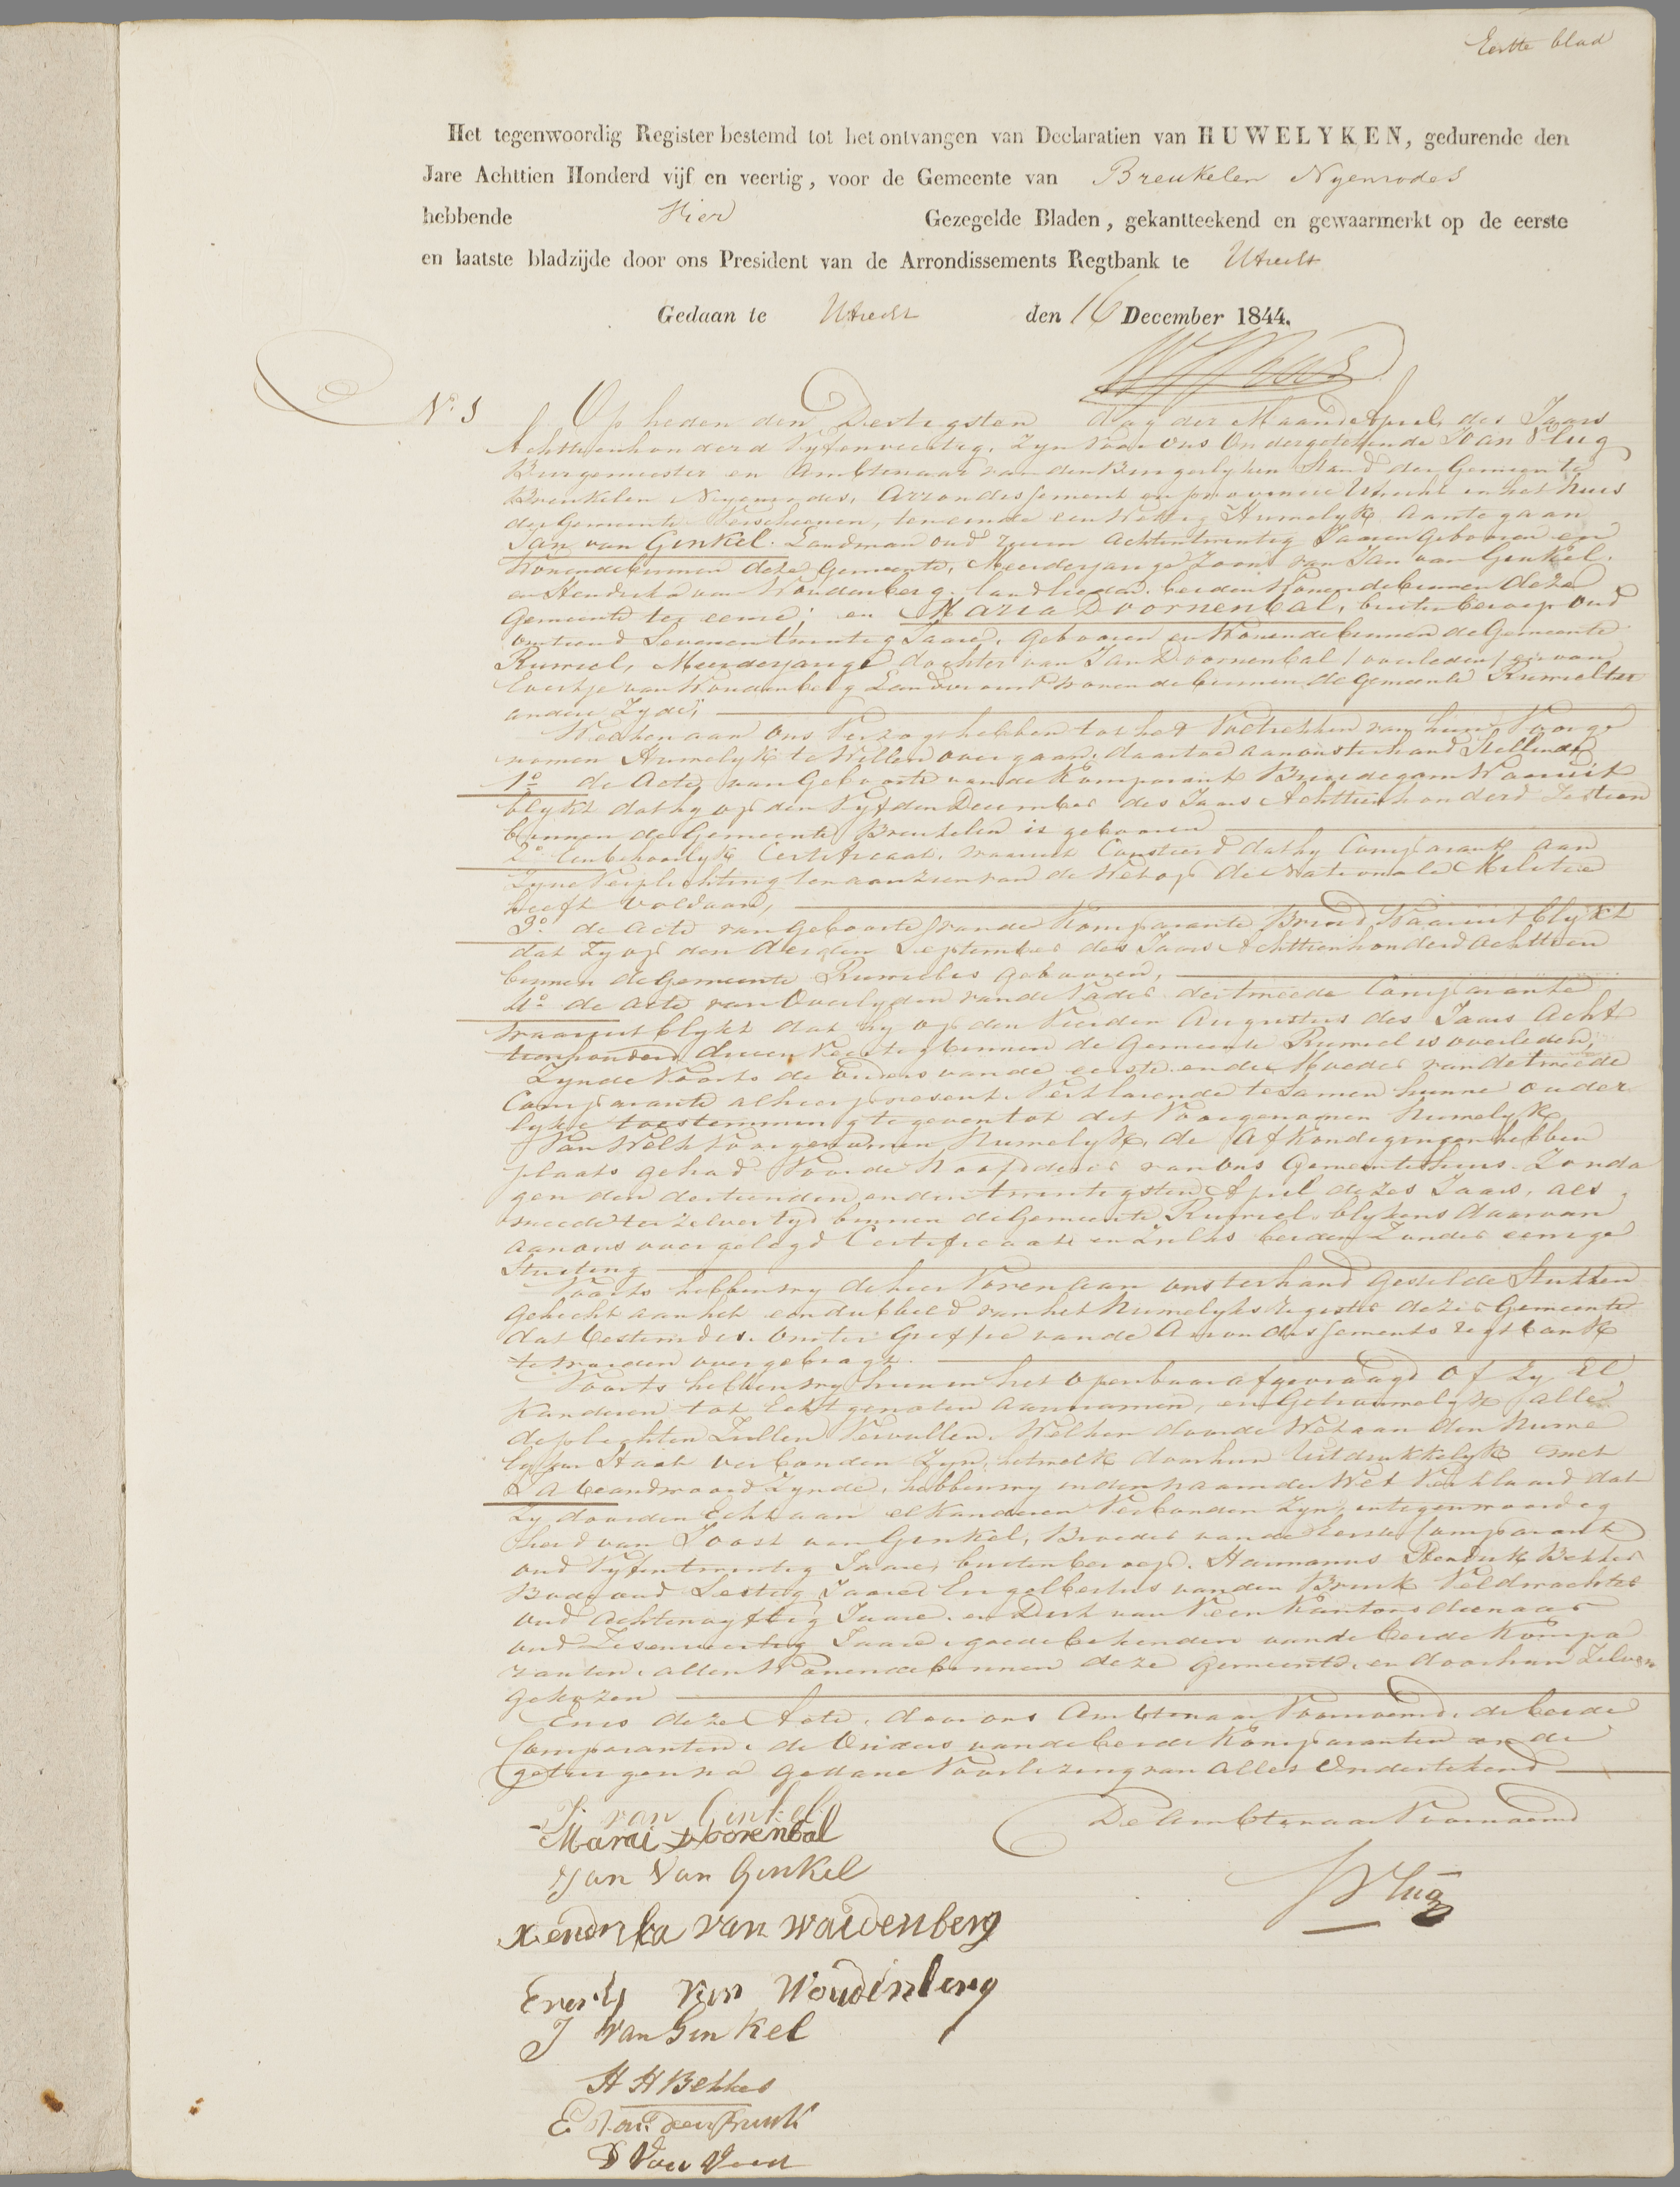 Eerste blad
Het tegenwoordig Register bestemd tot het ontvangen van Declaratien van HUWELYKEN, gedurende den
Jare Achttien Honderd vijf en veertig, voor de Gemeente van Breukelen Nyenrodes
hebbende Vier Gezegelde Bladen, gekantteekend en gewaarmerkt op de eerste
en laatste bladzijde door ons President van de Arrondissements Regtbank te Utrecht
Gedaan te Utrecht den 16 December 1844.
Op heden den Dertigsten dag der Maand April des Jaars
Achttienhonderd Vyfenveertig, Zyn voor ons Ondergetekende Joan Plug
Burgemeester en Ambtenaar van den Burgerlyken Stand der Gemeente
Breukelen Nyenrodes, Arrondissement en provincie Utrecht in het huis
der Gemeente Verscheenen, ten einde een Wettig Huwelyk aantegaan
Jan van Ginkel. Landman oud ruim achtentwintig Jaaren Gebooren en
Wonende binnen deze Gemeente, Meerderjarige Zoon van Jan van Ginkel.
en Hendrika van Woudenberg. landlieden. beiden Wonende binnen deze
Gemeente ter eenre; en Maria Doornenbal, buiten beroep oud
omtrend Sevenentwintig Jaare, gebooren en Wonende binnen de Gemeente
Ruwiel, Meerderjarige dochter van Jan Doornenbal / overleden / en van
Evertje van Woudenberg Landvrouw Wonende binnen de Gemeente Ruwiel ter
andere Zyde;
Welken aan ons Verzogt hebben tot het Voltrekken van hun Voorge
nomen Huwelyk te Willen overgaan, daartoe aan ons ter hand Stellende
1o de Acte van Geboorte van de Komparant Bruidegom Waaruit
blykt dat hy op den Vyfden December des Jaars Achttienhonderd Sestien
binnen de Gemeente Breukelen is gebooren
2o Een behoorlyk Certificaat, waaruit Consteerd dat hy Comparant aan
Zyne Verplichting ten aanzien van de Wet op de Nationale Militie
heeft voldaan,
3o de acte van Geboorte van de Komparante Bruid, Waaruit blykt
dat Zy op den derden September des Jaars Achttienhonderd achttien
binnen de Gemeente Ruwiel is gebooren,
4o de acte van Overlyden van de Vader der tweede Comparante
waaruit blykt dat hy op den Vierden Augustus des Jaars Acht
tienhonderd drieen Veertig binnen de Gemeente Ruwiel is overleden,
Zynde Voorts de Ouders van de eerste en de Moeder van de tweede
Comparante alhier present. Verklarende te Samen hunne ouder
lyke toestemming te geven tot dit Voorgenomen Huwelyk
Van Welk Voorgenomen Huwelyk, de Afkondigingen hebben
plaats gehad Voor de Hoofddeur van ons Gemeentehuis Zonda
gen den dertienden en den twintigsten April dezes Jaars, als
meede ter zelver tyd binnen de Gemeente Ruwiel. blykens daarvan
aan ons overgelegd Certificaat en Zulks beiden Zonder eenige
Stuiting
Voorts hebben wy de hier Voren aan ons ter hand gestelde Stukken
gehecht aan het een dubbeld van het Huwelyks Register dezer Gemeente
dat bestemd is. om ter Griffie van de Arrondissements regtbank
te worden overgebragt.
Voorts hebben wy hun in het openbaar afgevraagd of Zy El
kanderen tot Echtgenoten aannamen, en Getrouwelyk alle
de plichten Zullen Vervullen. Welken door de Wet aan den Huwe
lyken Staat verbonden Zyn, hetwelk door hun Uitdrukkelyk met
JA beandwoord Zynde, hebben wy in den naam der Wet Verklaard dat
Zy door den Echt aan elkanderen Verbonden Zyn, in tegenwoordig
heid van Joost van Ginkel, Broeder van de Eerste Comparant
oud Vyfentwintig Jaare, buiten beroep. Harmanus Hendrik Bekker
Bode oud Sestig Jaare Engelbertus van den Brink Veldwachter
oud Achtenvyftig Jaare. en Dirk van Veen Kantons dienaar
oud Zesenveertig Jaare, goede bekenden van de beide Kompa
ranten, allen Wonende binnen deze Gemeente, en door hun Zelven
gekozen
En is deze Acte, door ons Ambtenaar Voornoemd. de beide
Comparanten, de Ouders van de beide Komparanten en de
getuigen na gedane Voorlezing van alles Ondertekend
De Ambtenaar Voornoemd
J. van Ginkel
Marai Doorenbal
Jan Van Ginkel
Plug
Hendrika van woudenberg
Evertj van Woudenberg
J van Ginkel
H H Bekker
E van den Brink
D van Veen